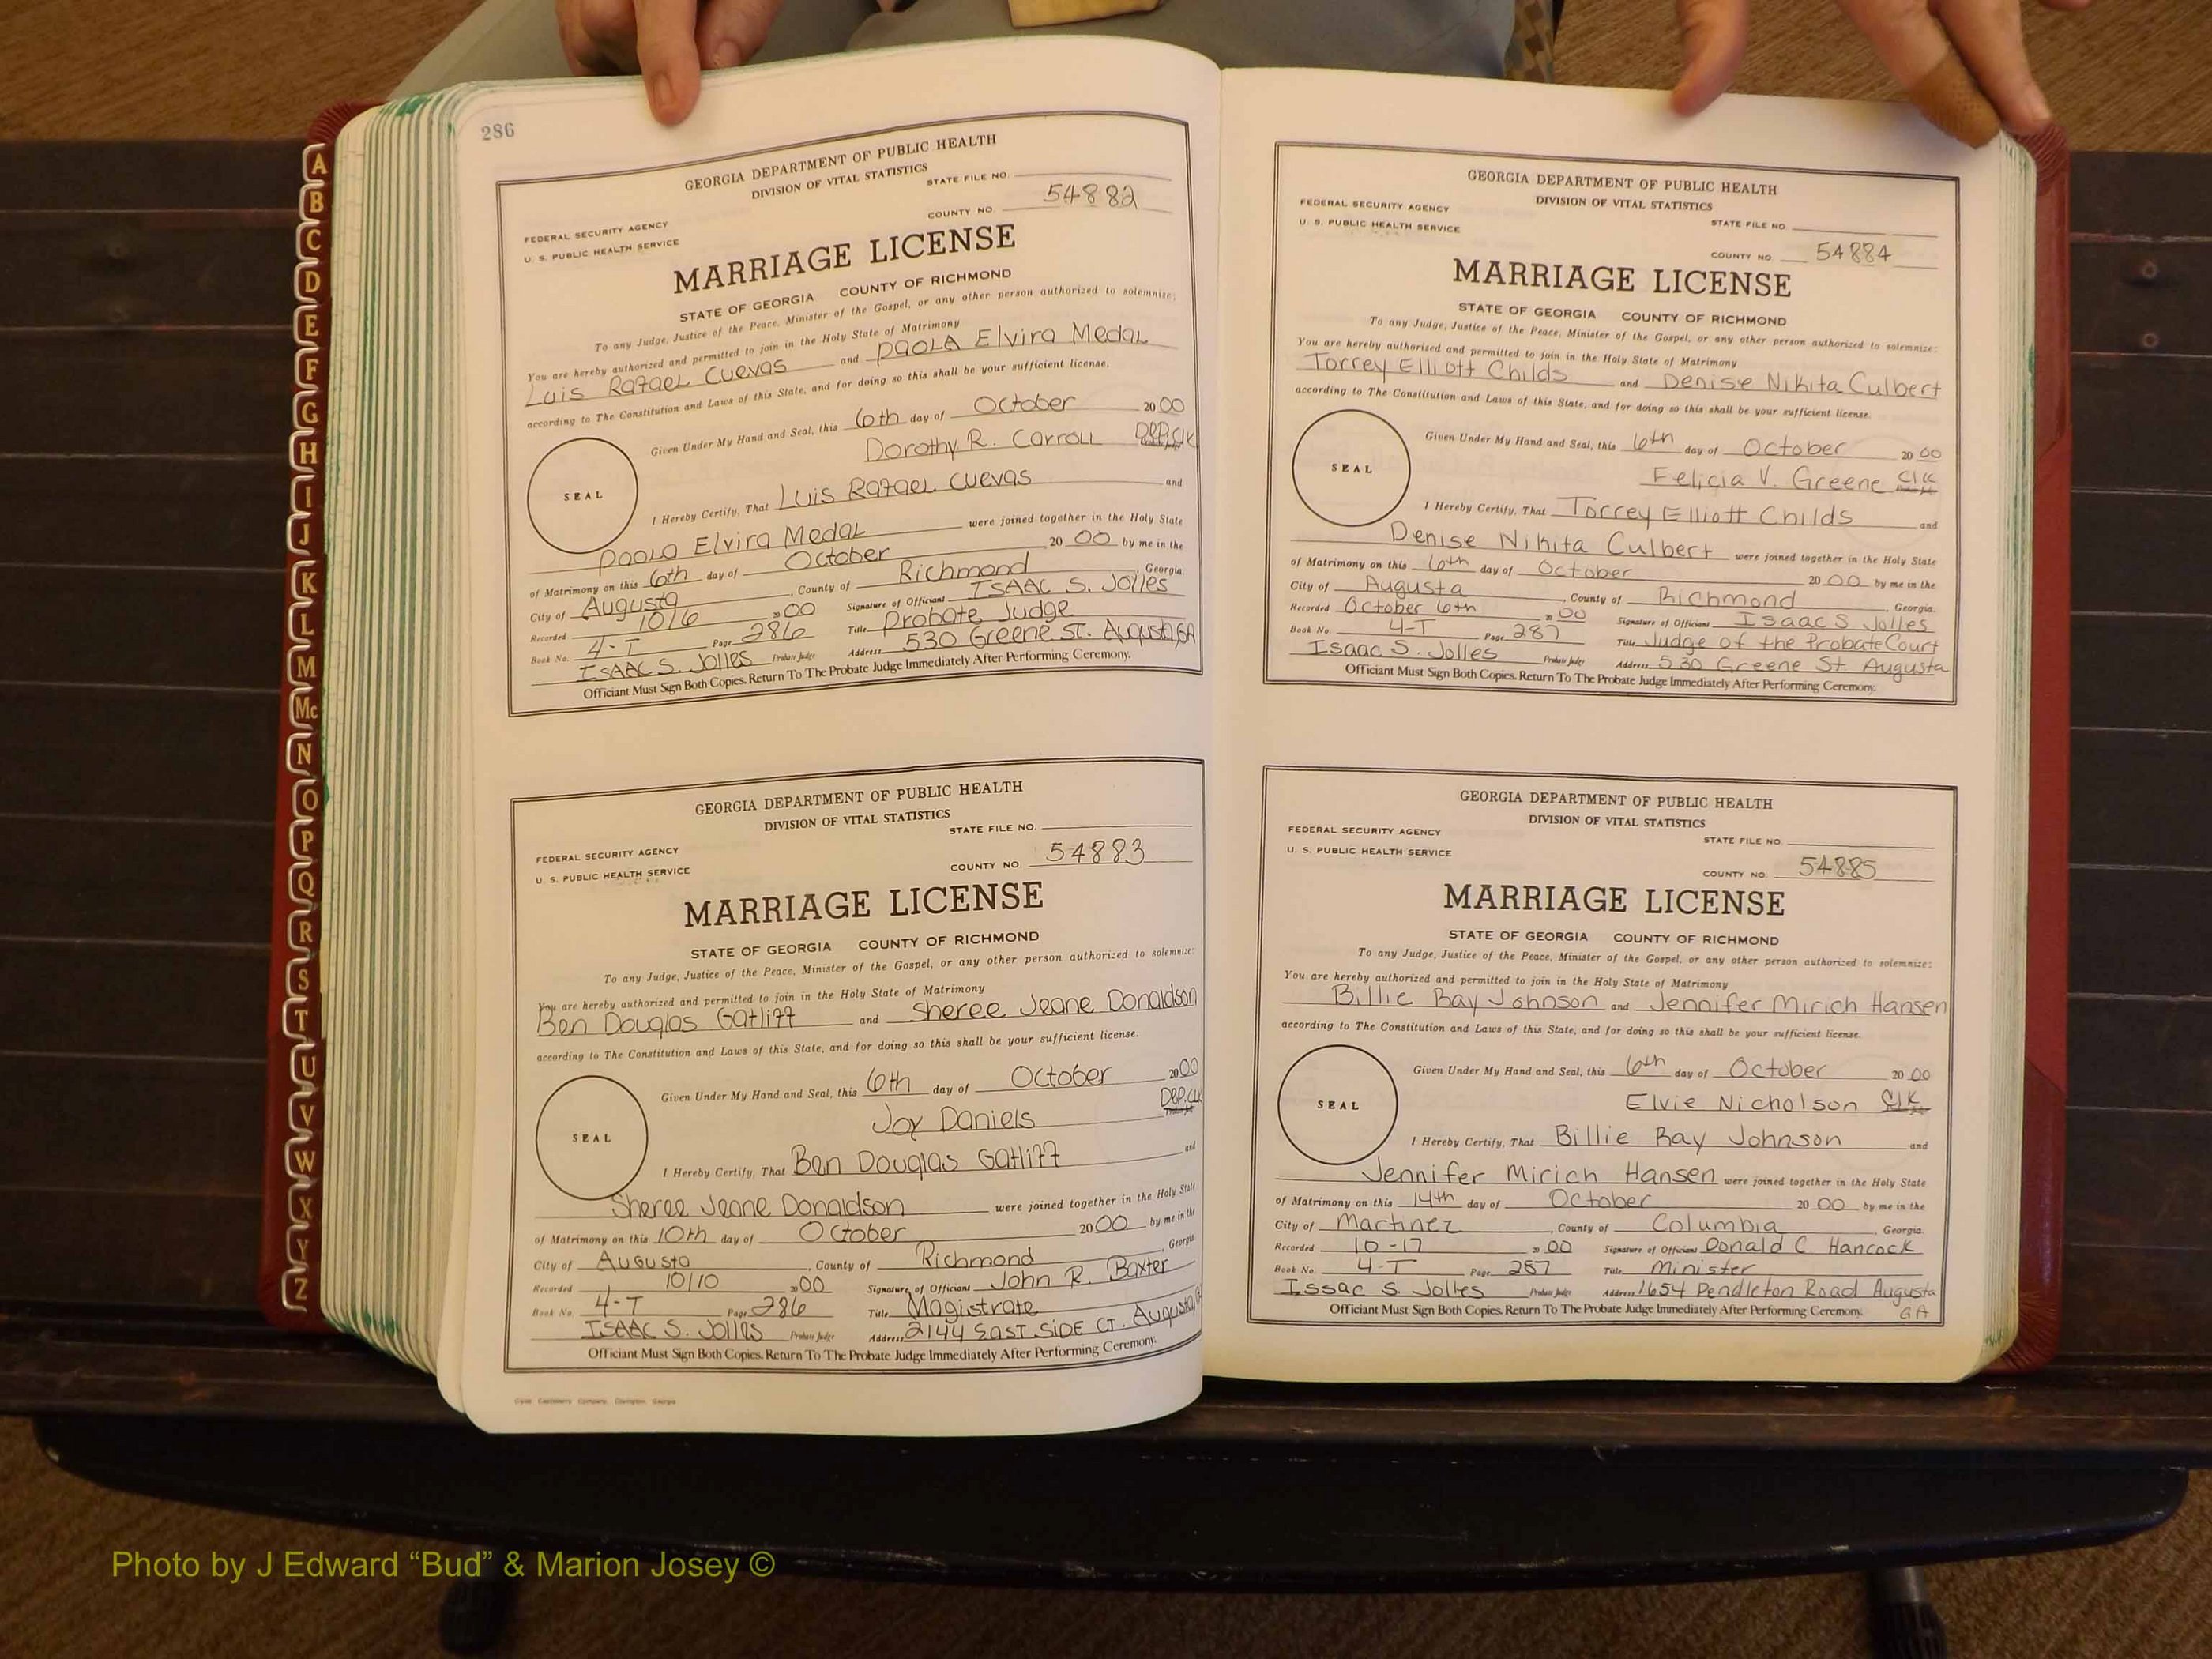 286
GEORGIA DEPARTMENT OF PUBLIC HEALTH
DIVISION OF VITAL STATISTICS
STATE FILE NO.
FEDERAL SECURITY AGENCY
COUNTY NO. 54882
U. S. PUBLIC HEALTH SERVICE
MARRIAGE LICENSE
STATE OF GEORGIA COUNTY OF RICHMOND
To any Judge, Justice of the Peace, Minister of the Gospel, or any other person authorized to solemnize:
You are hereby authorized and permitted to join in the Holy State of Matrimony
Luis Rafael Cuevas and Paola Elvira Medal
according to The Constitution and Laws of this State, and for doing so this shall be your sufficient license.
Given Under My Hand and Seal, this 6th day of October 2000
Dorothy R. Carroll Dep. Clk
SEAL
I Hereby Certify, That Luis Rafael Cuevas and
Paola Elvira Medal were joined together in the Holy State
of Matrimony on this 6th day of October 20 00 by me in the
City of Augusta, County of Richmond, Georgia.
Recorded 10/6 2000 Signature of Official ISAAC S. Jolles
Book No. 4-T Page 286 Title Probate Judge
ISAAC S. Jolles Probate Judge Address 530 Greene St. Augusta, GA
Officiant Must Sign Both Copies. Return To The Probate Judge Immediately After Performing Ceremony.
GEORGIA DEPARTMENT OF PUBLIC HEALTH
DIVISION OF VITAL STATISTICS
STATE FILE NO.
FEDERAL SECURITY AGENCY
COUNTY NO. 54883
U. S. PUBLIC HEALTH SERVICE
MARRIAGE LICENSE
STATE OF GEORGIA COUNTY OF RICHMOND
To any Judge, Justice of the Peace, Minister of the Gospel, or any other person authorized to solemnize:
You are hereby authorized and permitted to join in the Holy State of Matrimony
Ben Douglas Gatliff and Sheree Jeane Donaldson
according to The Constitution and Laws of this State, and for doing so this shall be your sufficient license.
Given Under My Hand and Seal, this 6th day of October 2000
Joy Daniels Dep. Clk
SEAL
I Hereby Certify, That Ben Douglas Gatliff and
Sheree Jeane Donaldson were joined together in the Holy State
of Matrimony on this 10th day of October 20 00 by me in the
City of Augusta, County of Richmond, Georgia
Recorded 10/10 2000 Signature of Official John R. Baxter
Book No. 4-T Page 286 Title Magistrate
ISAAC S. Jolles Probate Judge Address 2144 East Side Ct. Augusta, G
Officiant Must Sign Both Copies. Return To The Probate Judge Immediately After Performing Ceremony.
GEORGIA DEPARTMENT OF PUBLIC HEALTH
DIVISION OF VITAL STATISTICS
FEDERAL SECURITY AGENCY
STATE FILE NO.
U. S. PUBLIC HEALTH SERVICE
COUNTY NO. 54884
MARRIAGE LICENSE
STATE OF GEORGIA COUNTY OF RICHMOND
To any Judge, Justice of the Peace, Minister of the Gospel, or any other person authorized to solemnize:
You are hereby authorized and permitted to join in the Holy State of Matrimony
Torrey Elliott Childs and Denise Nikita Culbert
according to The Constitution and Laws of this State, and for doing so this shall be your sufficient license.
Given Under My Hand and Seal, this 6th day of October 20 00
Felicia V. Greene Clk
SEAL
I Hereby Certify, That Torrey Elliott Childs and
Denise Nikita Culbert were joined together in the Holy State
of Matrimony on this 6th day of October 20 00 by me in the
City of Augusta, County of Richmond, Georgia.
Recorded October 6th 2000 Signature of Official Isaac S. Jolles
Book No. 4-T Page 287 Title Judge of the Probate Court
Isaac S. Jolles Probate Judge Address 530 Greene St Augusta
Officiant Must Sign Both Copies. Return To The Probate Judge Immediately After Performing Ceremony.
GEORGIA DEPARTMENT OF PUBLIC HEALTH
DIVISION OF VITAL STATISTICS
FEDERAL SECURITY AGENCY
STATE FILE NO.
U. S. PUBLIC HEALTH SERVICE
COUNTY NO. 54885
MARRIAGE LICENSE
STATE OF GEORGIA COUNTY OF RICHMOND
To any Judge, Justice of the Peace, Minister of the Gospel, or any other person authorized to solemnize:
You are hereby authorized and permitted to join in the Holy State of Matrimony
Billie Ray Johnson and Jennifer Mirich Hansen
according to The Constitution and Laws of this State, and for doing so this shall be your sufficient license.
Given Under My Hand and Seal, this 6th day of October 20 00
Elvie Nicholson Clk
SEAL
I Hereby Certify, That Billie Ray Johnson and
Jennifer Mirich Hansen were joined together in the Holy State
of Matrimony on this 14th day of October 20 00 by me in the
City of Martinez, County of Columbia, Georgia.
Recorded 10-17 20 00 Signature of Official Donald C. Hancock
Book No. 4-T Page 287 Title Minister
Issac S. Jolles Probate Judge Address 1654 Pendleton Road Augusta
Officiant Must Sign Both Copies. Return To The Probate Judge Immediately After Performing Ceremony. GA
A
B
C
D
E
F
G
H
I
J
K
L
M
Mc
N
O
P
Q
R
S
T
U
V
W
X
Y
Z
Photo by J Edward “Bud” & Marion Josey ©